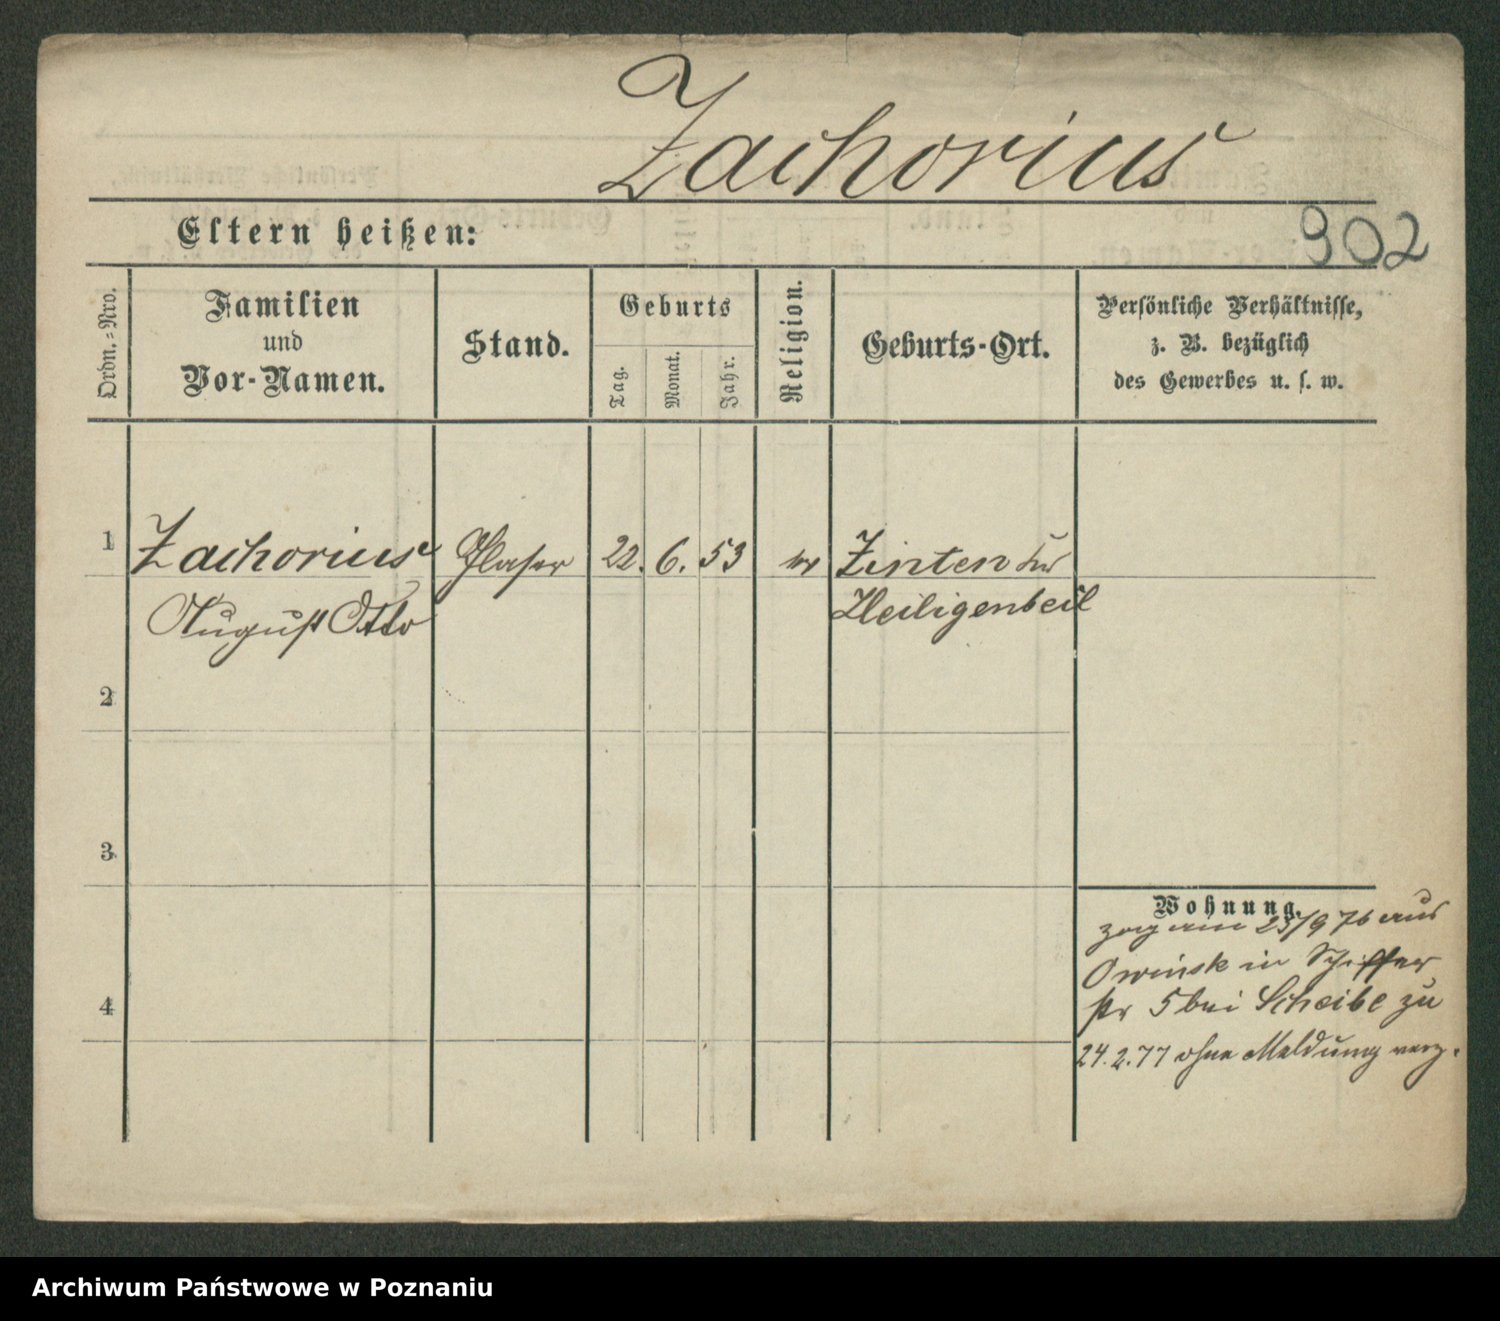 Zachorius
Eltern heißen:
902
Ordn.-Nro.
Familien
und
Vor-Namen.
Stand.
Geburts
Tag.
Monat.
Jahr.
Religion.
Geburts-Ort.
Persönliche Verhältnisse,
z. B. bezüglich
des Gewerbes u. s. w.
1
Zachorius
August Otto
Glaser
22. 6. 53
Zinten
Heiligenbeil
2
3
4
Wohnung.
zog am 25/9 76 aus
Owinsk in Schiffer
str 5 bei Scheibe zu
24.2.77 ohne Meldung verz.
Archiwum Państwowe w Poznaniu